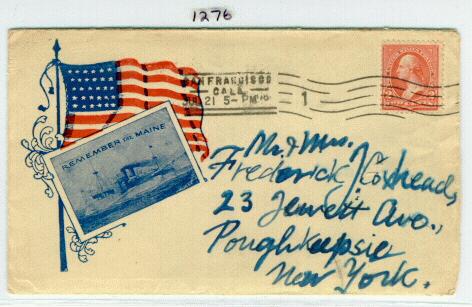 1276
REMEMBER THE MAINE
SAN FRANCISCO
CAL.
JUL 21 5-PM '98
1
Mr & Mrs.
Frederick Coxhead,
23 Jewett Ave.,
Poughkeepsie
New York.